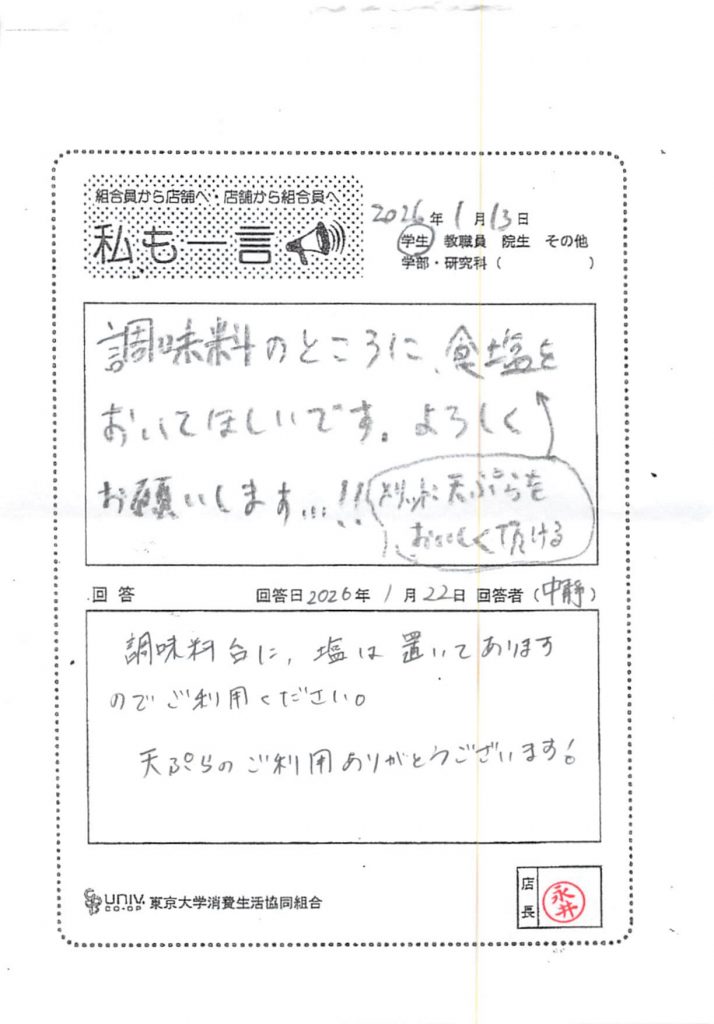 組合員から店舗へ・店舗から組合員へ
私も一言
2026年1月13日
学生 教職員 院生 その他
学部・研究科( )
調味料のところに、食塩を
おいてほしいです。よろしく
お願いします...!!
メリット:天ぷらを
おいしく頂ける
回答 回答日2026年1月22日 回答者(中静)
調味料台に、塩は置いてあります
のでご利用ください。
天ぷらのご利用ありがとうございます!
UNIV.
CO-OP 東京大学消費生活協同組合
店長
永井